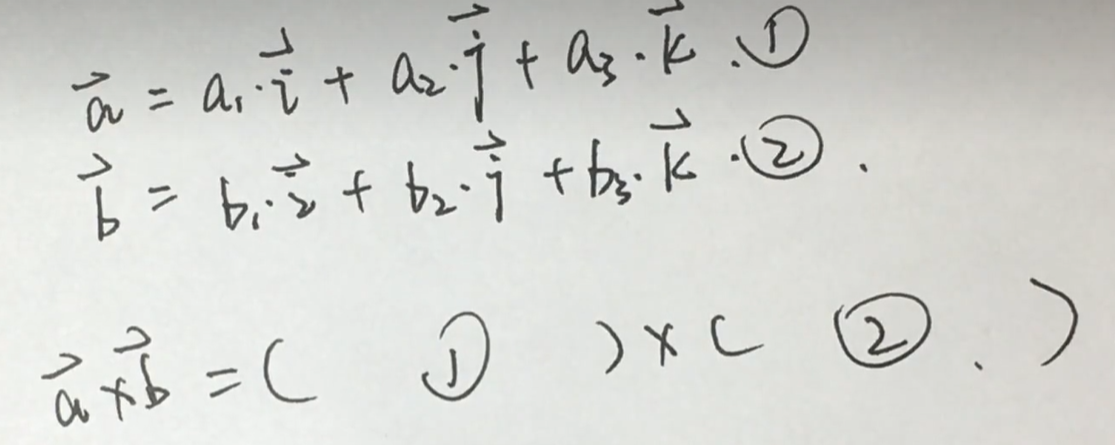 a⃗ = a₁·i⃗ + a₂·j⃗ + a₃·k⃗ .①
b⃗ = b₁·i⃗ + b₂·j⃗ + b₃·k⃗ .② .
a⃗×b⃗ = ( ① )×( ② . )